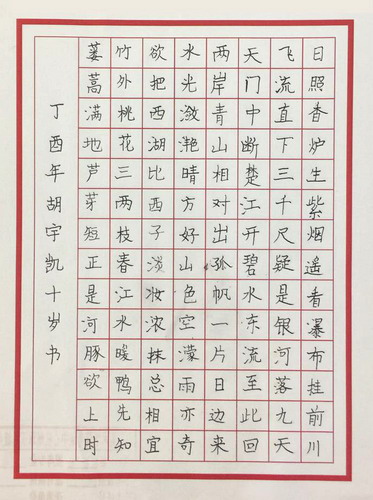 日照香炉生紫烟遥看瀑布挂前川
飞流直下三千尺疑是银河落九天
天门中断楚江开碧水东流至此回
两岸青山相对出孤帆一片日边来
水光潋滟晴方好山色空濛雨亦奇
欲把西湖比西子淡妆浓抹总相宜
竹外桃花三两枝春江水暖鸭先知
蒌蒿满地芦芽短正是河豚欲上时
丁酉年胡宇凯十岁书